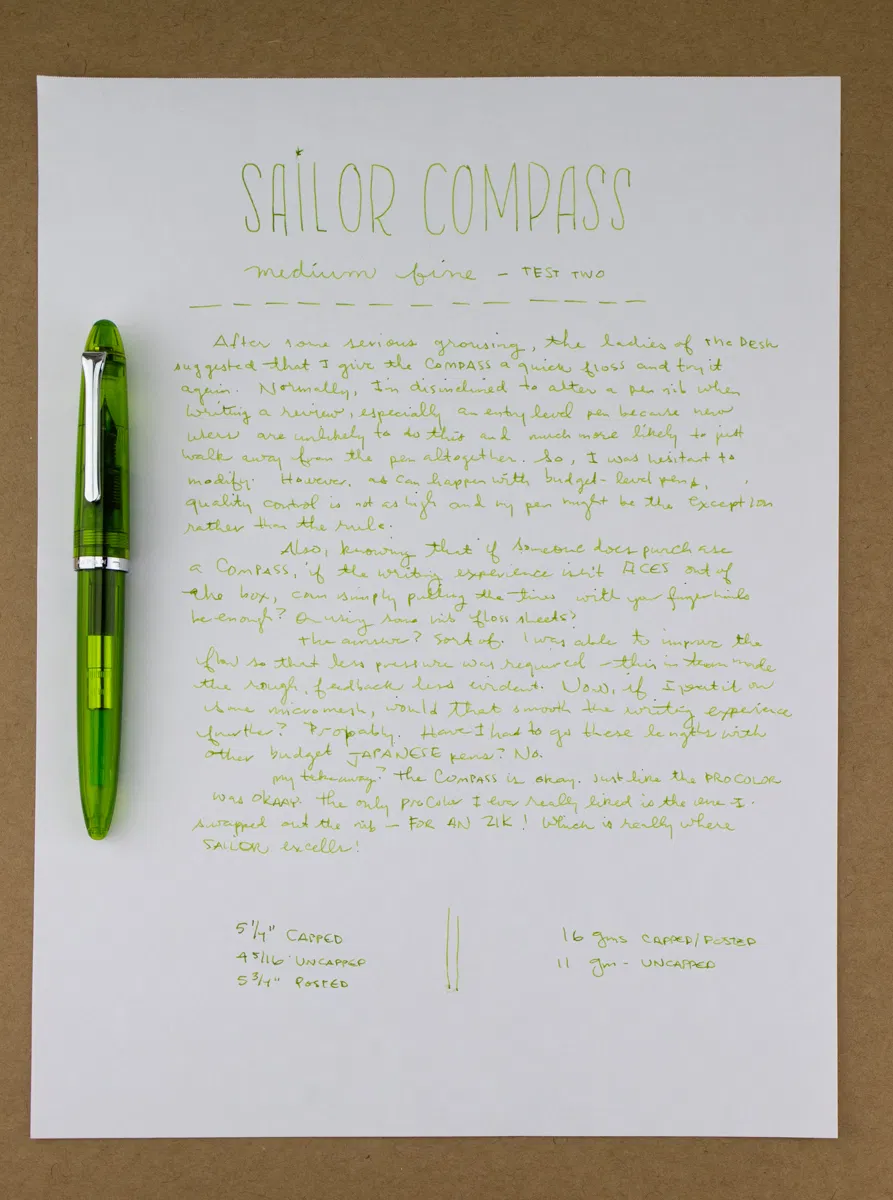 SAILOR COMPASS
medium fine - TEST TWO
After some serious grousing, the ladies of the Desk
suggested that I give the COMPASS a quick floss and try it
again. Normally, I'm disinclined to alter a pen nib when
writing a review, especially an entry level pen because new
users are unlikely to do this and much more likely to just
walk away from the pen altogether. So, I was hesitant to
modify. However, as can happen with budget-level pens,
quality control is not as high and my pen might be the exception
rather than the rule.
Also, knowing that if someone does purchase
a COMPASS, if the writing experience isn't ACES out of
the box, can simply pulling the tines with your fingernails
be enough? Or using some nib floss sheets?
The answer? Sort of. I was able to improve the
flow so that less pressure was required - this in turn made
the rough feedback less evident. Now, if I put it on
some micromesh, would that smooth the writing experience
further? Probably. Have I had to go these lengths with
other budget JAPANESE pens? No.
my takeaway? The COMPASS is okay. Just like the PROCOLOR
was OKAAY. The only ProColor I ever really liked is the one I
swapped out the nib - FOR AN 21K! Which is really where
SAILOR excells!
5 1/4" CAPPED
4 5/16" UNCAPPED
5 3/4" POSTED
16 gms CAPPED/POSTED
11 gm - UNCAPPED